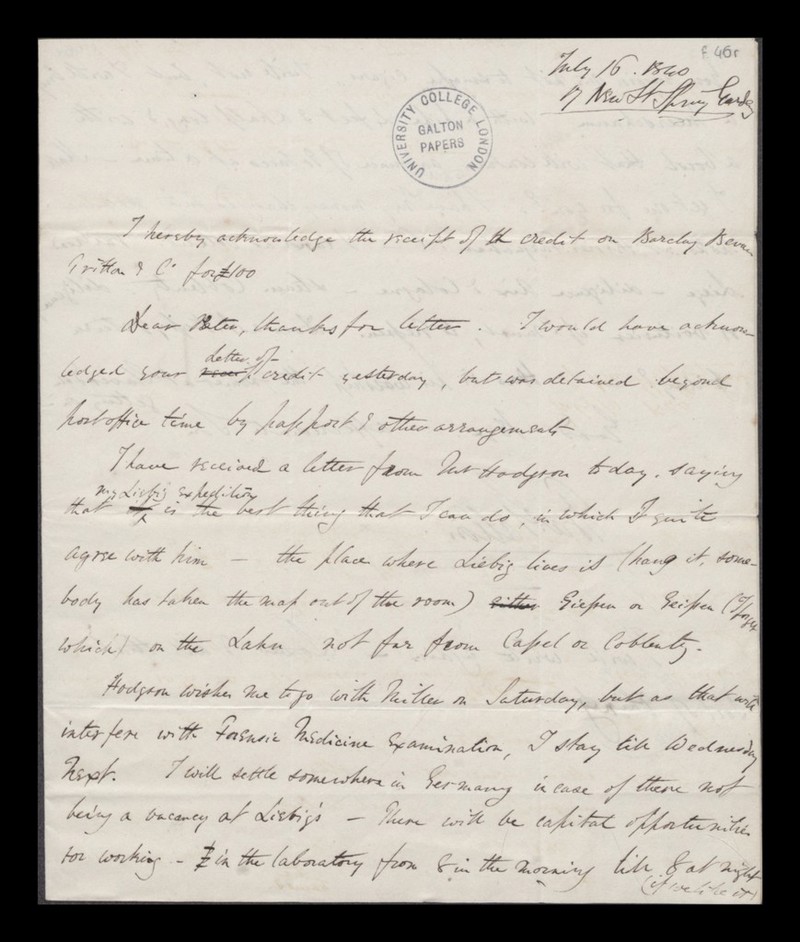 f 46r
July 16. 1840
17 New St Spring Gardens
UNIVERSITY COLLEGE LONDON
GALTON
PAPERS
I hereby acknowledge the receipt of the credit on Barclay Bevan
Tritton & Co for £100
Dear Pater, thanks for letter. I would have acknow-
ledged your letter of credit yesterday, but was detained beyond
post office time by passport & other arrangements
I have received a letter from Mr Hodgson today. saying
that my Liebig expedition is the best thing that I can do, in which I quite
agree with him — the place where Liebig lives is (hang it, some-
body has taken the map out of the room) either Giessen or Geissen (I forget
which) on the Lahn not far from Cassel or Coblentz.
Hodgson wishes me to go with Miller on Saturday, but as that will
interfere with Forensic Medicine Examination, I stay till Wednesday
Next. I will settle somewhere in Germany in case of there not
being a vacancy at Liebig's — There will be capital opportunities
for working - in the laboratory from 8 in the morning till 8 at night
(if we like it)